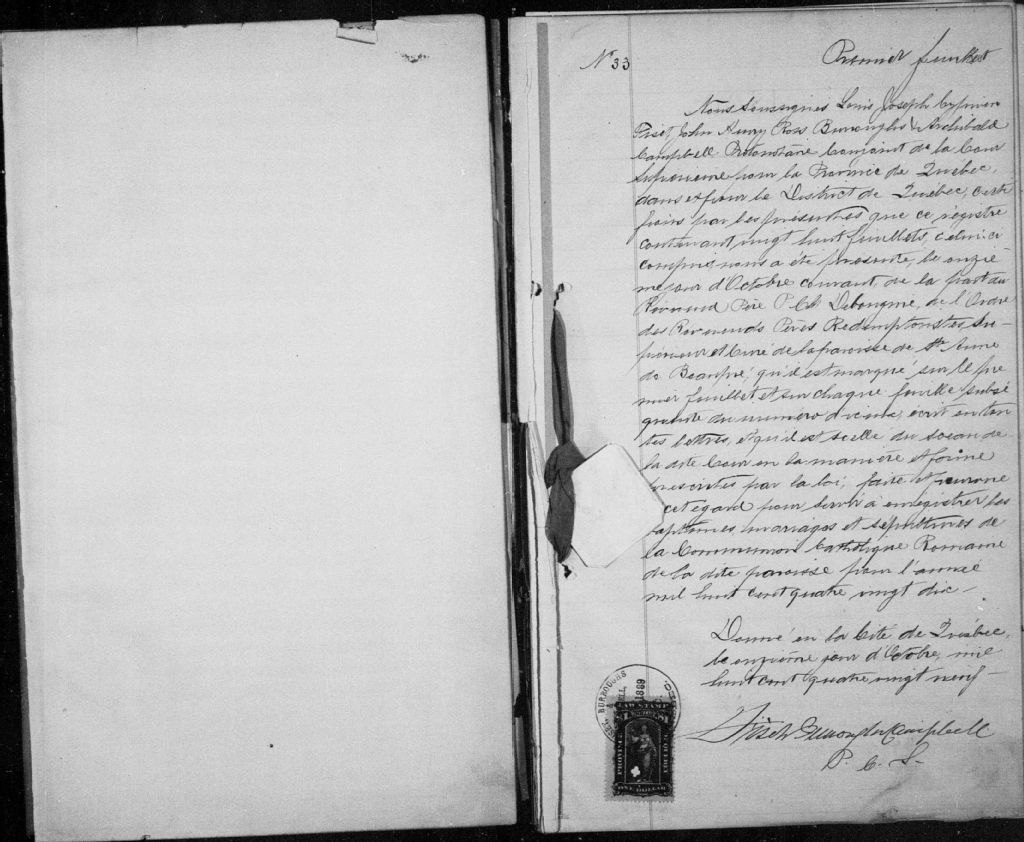 N° 33
Premier feuillet
Nous soussignés Louis Joseph Cyprien
Fiset, John Henry Ross Burroughs & Archibald
Campbell Protonotaire Conjoint de la Cour
Supérieure pour la Province de Québec,
dans et pour le District de Québec, certi
fions par les présentes que ce registre
contenant vingt huit feuillets, celui-ci
compris, nous a été présenté, le onziè
me jour d'Octobre courant, de la part du
Révérend Père P. Ch. Debongnie, de l'Ordre
des Révérends Pères Redemptoristes Su-
périeur et Curé de la paroisse de Ste Anne
de Beaupré, qu'il est marqué sur le pre
mier feuillet et sur chaque feuille subsé
quente du numéro d'icelle, écrit en tou
tes lettres, et qu'il est scellé du sceau de
la dite Cour en la manière et forme
prescrites par la loi, faite et
cet égard pour servir à enregistrer les
baptêmes, mariages et sépultures de
la Communion Catholique Romaine
de la dite paroisse pour l'année
mil huit cent quatre vingt dix -
Donné en la Cité de Québec,
le onzième jour d'Octobre, mil
huit cent quatre vingt neuf -
Fiset Burroughs Campbell
P. C. S.
BURROUGHS
1889
LAW STAMP
PROVINCE
QUEBEC
ONE DOLLAR